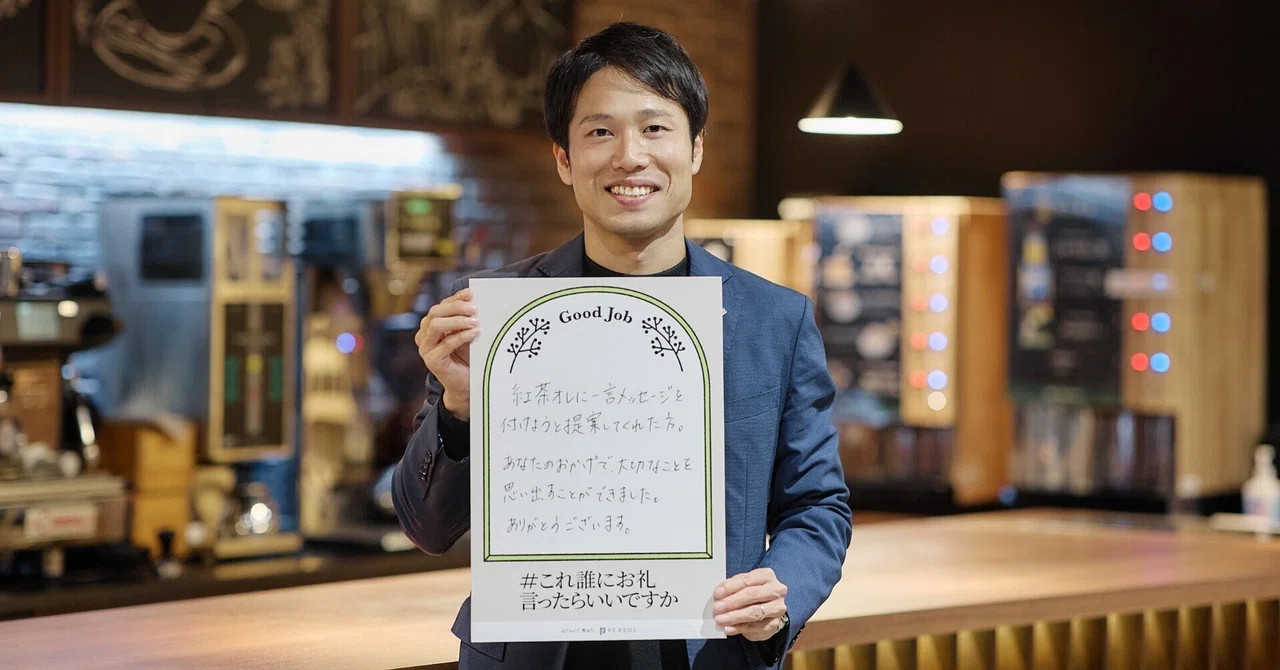 Good Job
紅茶オレに一言メッセージを
付けようと提案してくれた方。
あなたのおかげで、大切なことを
思い出すことができました。
ありがとうございます。
#これ誰にお礼
言ったらいいですか
はたらいて、笑おう。 PERSOL